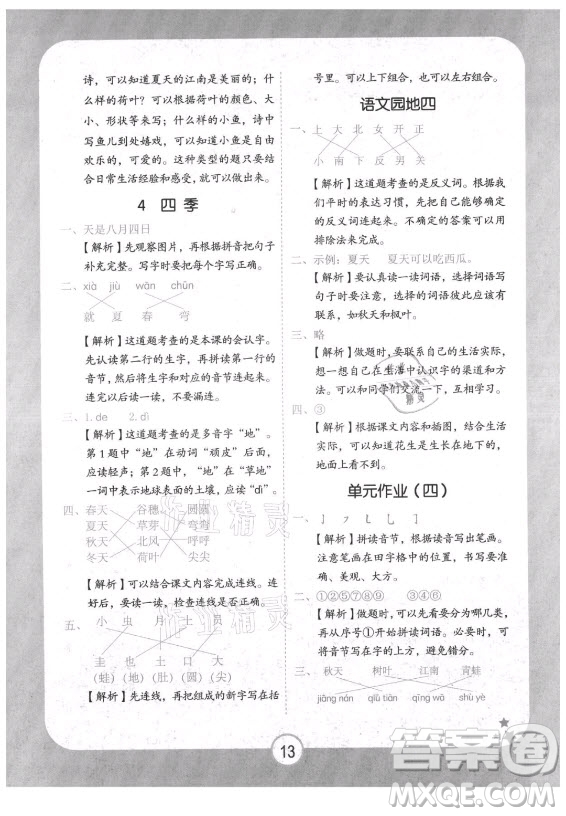 诗，可以知道夏天的江南是美丽的；什
么样的荷叶？可以根据荷叶的颜色、大
小、形状等，用一个词来描写；什么样
的小鱼？想一想小鱼的样子，诗中
写鱼儿到处嬉戏，可以知道小鱼是自由
欢乐的，可爱的。这种类型的题只要结
合日常生活经验和感受，就可以完成。
4 四 季
一、天是八月四日
【解析】先观察图片，再根据拼音把句子
补充完整。写字时要把每个字写正确。
二、xià jiù wān chūn
就 夏 春 弯
【解析】这道题考查的是本课的会认字。
先认读第二行的生字，再拼读第一行的
音节，然后把音节和对应的生字连起来。
连线后可以读一读，不要漏连。
三、1.de 2.dì
【解析】这道题考查的是多音字“地”。
第1题中“地”在动词“顽皮”后面，
应读轻声；第2题中“地”在“草地”
一词中，表示地球表面的土壤，应读“dì”。
四、春天 谷穗 圆圆
夏天 草芽 弯弯
秋天 北风 呼呼
冬天 荷叶 尖尖
【解析】可以结合课文内容完成连线。连
好后，要读一读，检查连线是否正确。
五、小 虫 月 土 口
圭 也 土 口 大
（蛙）（地）（肚）（圆）（尖）
【解析】先连线，再把组成的新字写在括
号里。可以上下组合，也可以左右组合。
语文园地四
一、上 大 北 女 开 正
小 南 下 反 男 关
【解析】这道题考查的是反义词。根据我
们平时的表达习惯，把具有相反意思的
反义词连起来。不确定的答案可以用
排除法来完成。
二、示例：夏天 夏天可以吃西瓜。
【解析】要认真读一读词语，选词语写
句子时要注意，选择的词语彼此应该有
联系，如秋天和枫叶。
三、略
【解析】做题时，要联系自己的生活实际，
想一想自己在生活中认识字的渠道和方
法。可以和同学们交流一下。
四、③
【解析】根据课文内容和插图，结合生活
实际，可以知道花生是长在地下的，
土里面的。
单元作业（四）
【解析】拼读音节，根据发音写出笔画。
注意笔画在田字格中的位置，要写得正
确、美观、大方。
二、①②⑤⑦⑧⑨ ③④⑥
【解析】做题时，可以先看要分为哪几类，
再从序号①开始拼读词语。必要时，可
将音节写在图片上，避免分错。
三、秋天 树叶 江南 青蛙
jiāng nán qiū tiān qīng wā shù yè
13
作业精灵
作业精灵
答案卷
MXQE.COM